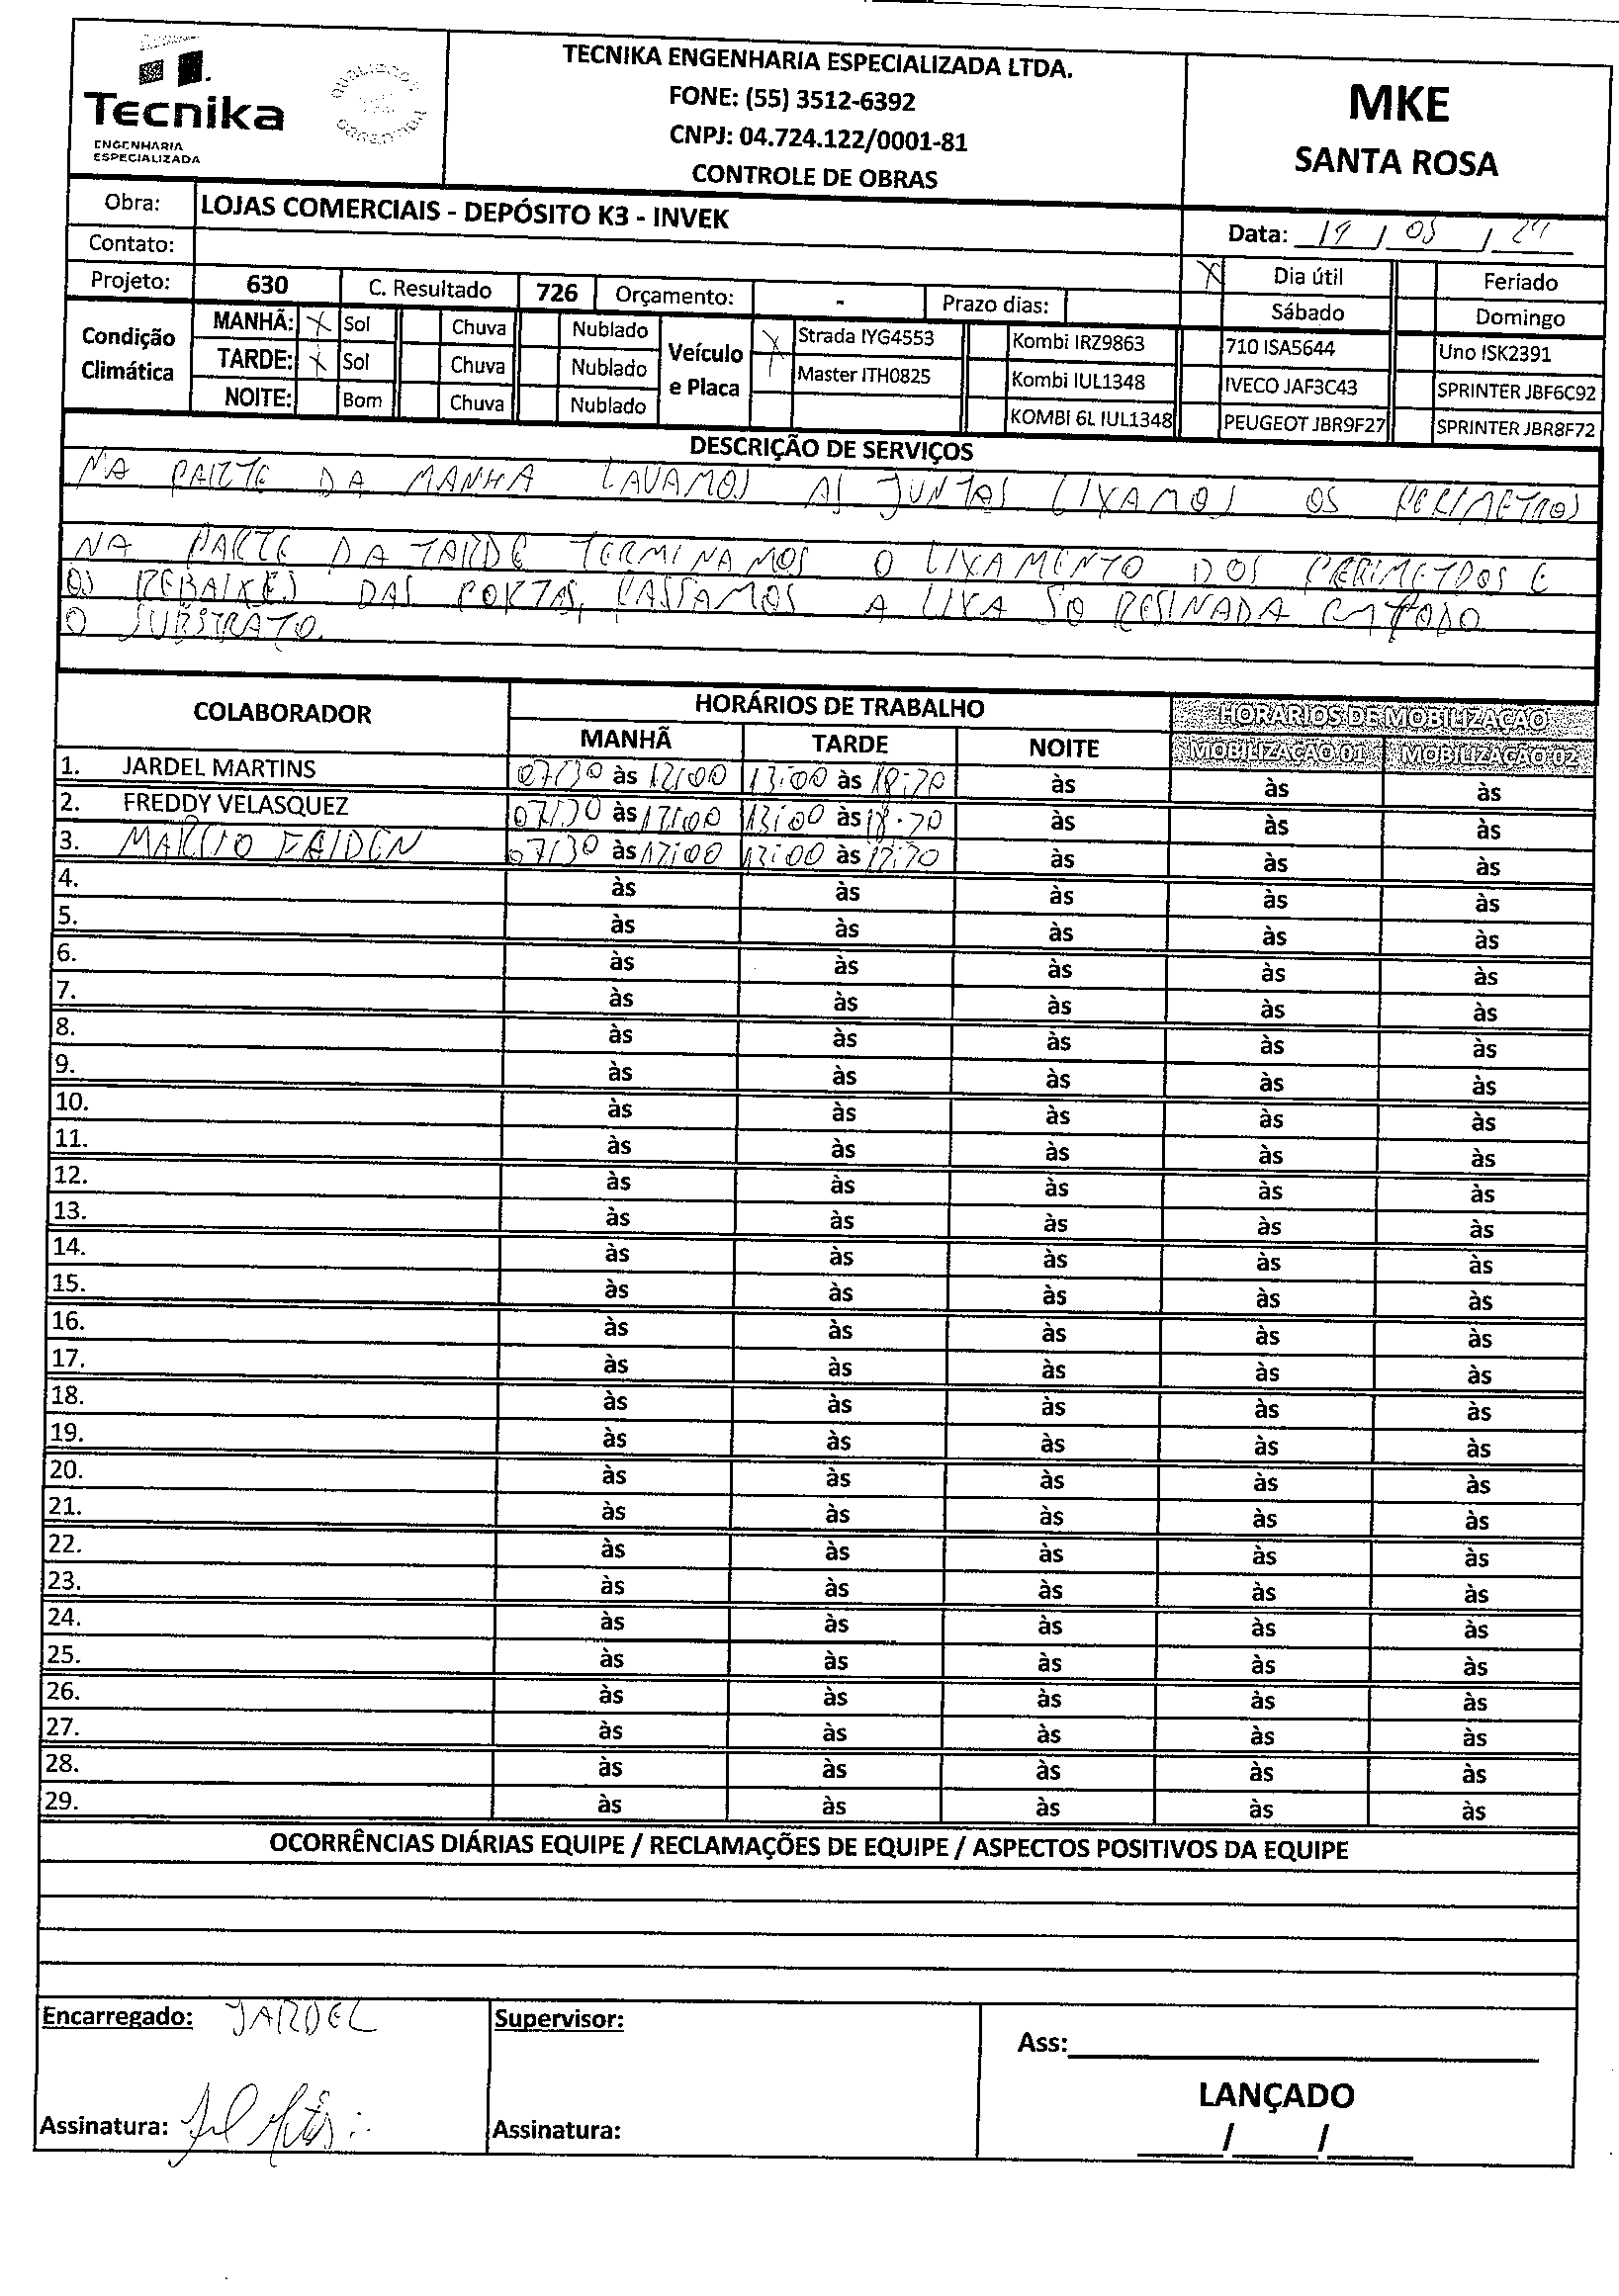 Tecnika
ENGENHARIA
ESPECIALIZADA
TECNIKA ENGENHARIA ESPECIALIZADA LTDA.
FONE: (55) 3512-6392
CNPJ: 04.724.122/0001-81
CONTROLE DE OBRAS
MKE
SANTA ROSA
Obra: LOJAS COMERCIAIS - DEPÓSITO K3 - INVEK
Contato:
Data: / 05 /
Projeto: 630 C. Resultado 726 Orçamento: - Prazo dias:
X Dia útil Feriado
Sábado Domingo
Condição Climática
MANHÃ: X Sol Chuva Nublado
TARDE: X Sol Chuva Nublado
NOITE: Bom Chuva Nublado
Veículo e Placa
X Strada IYG4553 Kombi IRZ9863 710 ISA5644 Uno ISK2391
Master ITH0825 Kombi IUL1348 IVECO JAF3C43 SPRINTER JBF6C92
KOMBI 6L IUL1348 PEUGEOT JBR9F27 SPRINTER JBR8F72
DESCRIÇÃO DE SERVIÇOS
NA PARTE DA MANHA LAVAMOS AS JUNTAS LIXAMOS OS PERIMETROS
NA PARTE DA TARDE TERMINAMOS O LIXAMENTO DOS PERIMETROS E
OS REBAIXES DAS PORTAS, PASSAMOS A LIXA 50 RESINADA EM TODO
O SUBSTRATO.
COLABORADOR HORÁRIOS DE TRABALHO HORÁRIOS DE MOBILIZAÇÃO
MANHÃ TARDE NOITE MOBILIZAÇÃO 01 MOBILIZAÇÃO 02
1. JARDEL MARTINS 07:30 às 12:00 13:00 às 18:20 às às às
2. FREDDY VELASQUEZ 07:30 às 12:00 13:00 às 18:20 às às às
3. MARCIO 07:30 às 12:00 13:00 às às às às
4. às às às às às
5. às às às às às
6. às às às às às
7. às às às às às
8. às às às às às
9. às às às às às
10. às às às às às
11. às às às às às
12. às às às às às
13. às às às às às
14. às às às às às
15. às às às às às
16. às às às às às
17. às às às às às
18. às às às às às
19. às às às às às
20. às às às às às
21. às às às às às
22. às às às às às
23. às às às às às
24. às às às às às
25. às às às às às
26. às às às às às
27. às às às às às
28. às às às às às
29. às às às às às
OCORRÊNCIAS DIÁRIAS EQUIPE / RECLAMAÇÕES DE EQUIPE / ASPECTOS POSITIVOS DA EQUIPE
Encarregado: JARDEL
Supervisor:
Ass:
LANÇADO
Assinatura:
Assinatura:
/ /